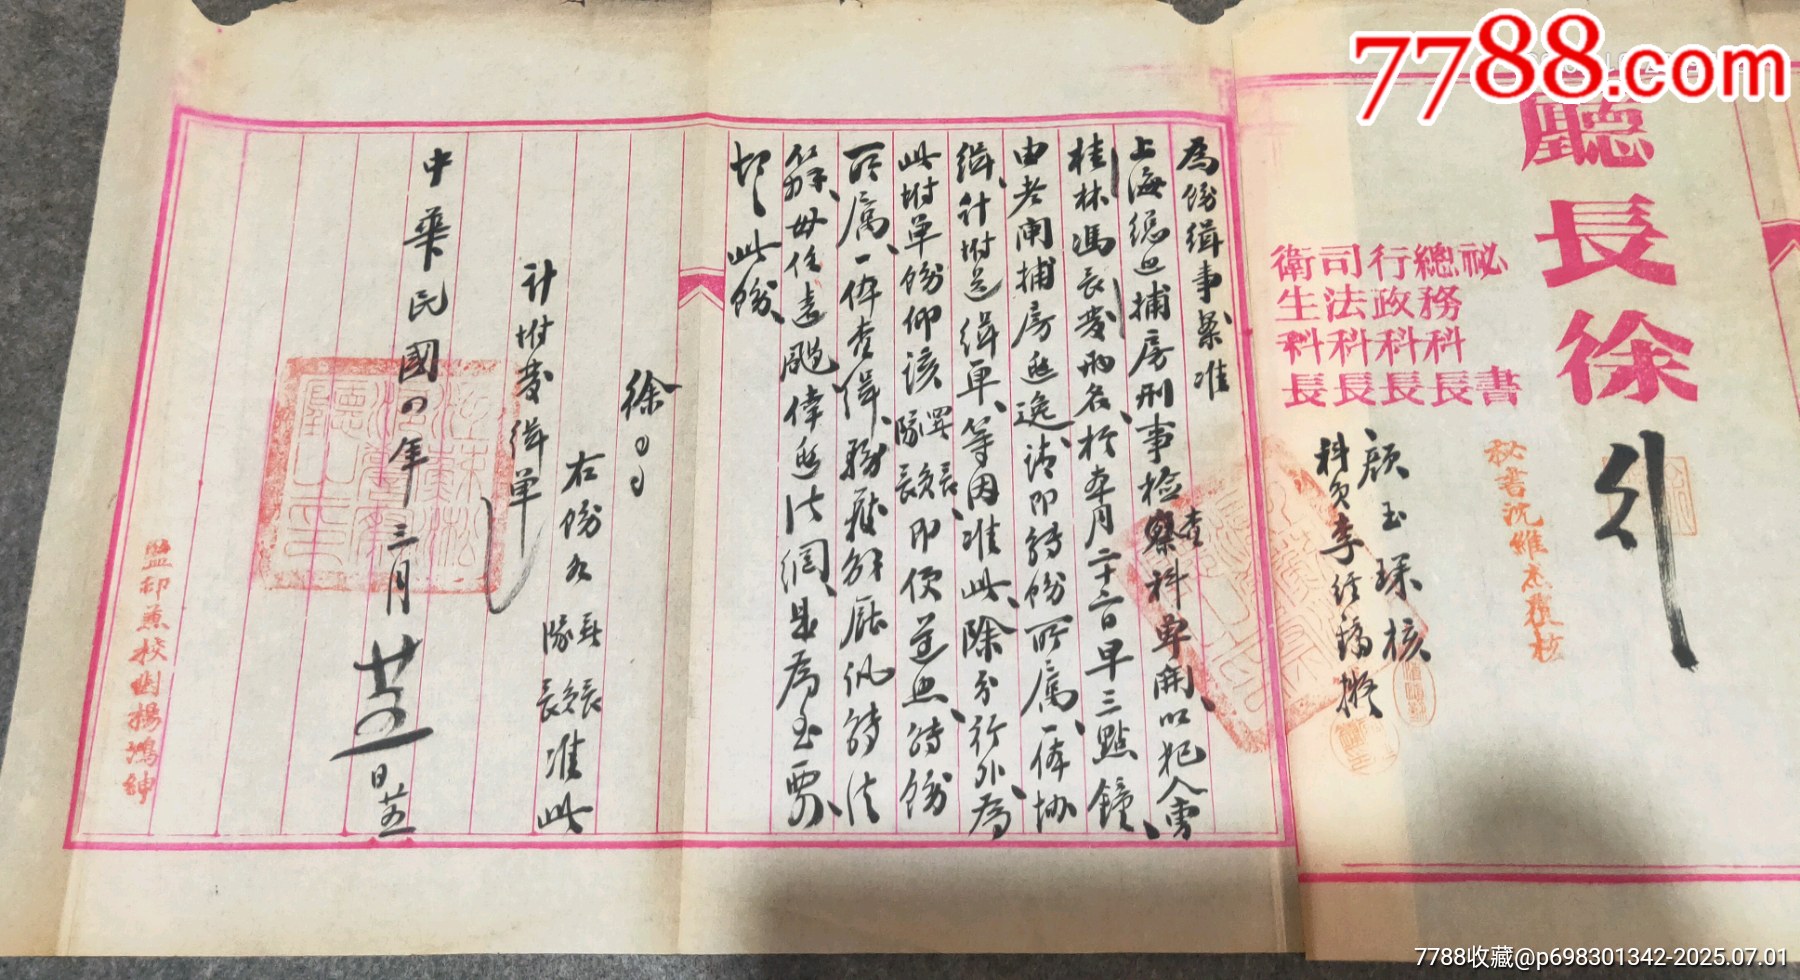 7788.com
廳長徐
祕書
總務科長
行政科長
司法科長
衛生科長
秘書沈維杰覆核
顏玉琛核
科員李經擬
為飭緝事案准
上海總巡捕房刑事檢察科單開以犯人曹
桂林馮長發兩名於本月二十六日早三點鐘
由老閘捕房逃逸請即轉飭所屬一体協
緝計附送緝單等因准此除分行外為
此附單飭仰該即便遵照轉飭
所屬一体查緝務獲解廳訊轉法
辦毋任遠颺倖逃法網是為至要
切切此飭
徐
右飭准此
計附發緝單
中華民國四年三月廿日
監印兼校對楊鴻紳
7788收藏@p698301342-2025.07.01